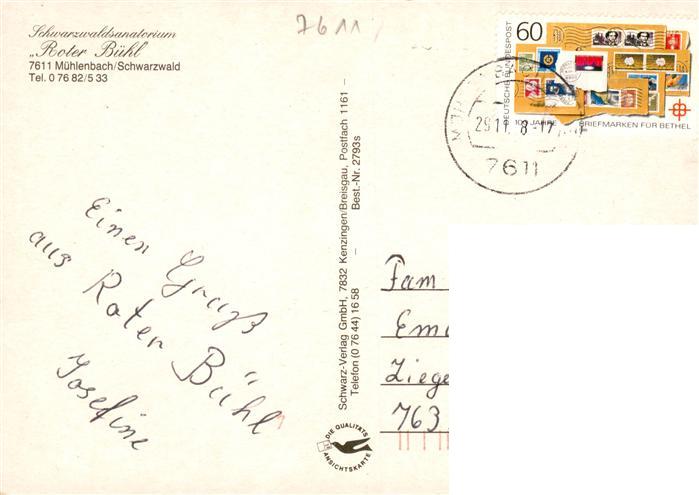 7611
Schwarzwaldsanatorium
„Roter Bühl"
7611 Mühlenbach/Schwarzwald
Tel. 0 76 82/5 33
60
DEUTSCHE BUNDESPOST
100 JAHRE BRIEFMARKEN FÜR BETHEL
29.11. 8 -17
7611
Einen Gruß
aus Roten Bühl
Josefine
Schwarz-Verlag GmbH, 7832 Kenzingen/Breisgau, Postfach 1161 –
Telefon (0 76 44) 16 58 – Best.-Nr. 2793s
Fam
Em
Ziege
763
DIE QUALITÄTS
ANSICHTSKARTE